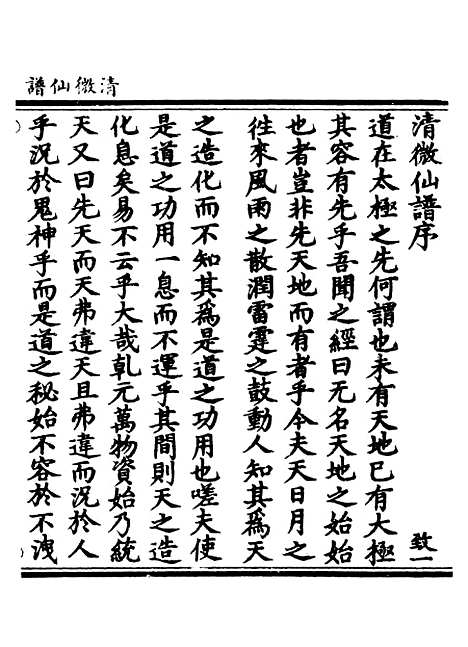 清微仙譜
清微仙譜序 致一
道在太極之先何謂也未有天地已有太極
其容有先乎吾聞之經曰无名天地之始始
也者豈非先天地而有者乎今夫天日月之
徃來風雨之散潤雷霆之鼓動人知其爲天
之造化而不知其爲是道之功用也嗟夫使
是道之功用一息而不運乎其間則天之造
化息矣易不云乎大哉乹元萬物資始乃統
天又曰先天而天弗違天且弗違而況於人
乎況於鬼神乎而是道之秘始不容於不洩